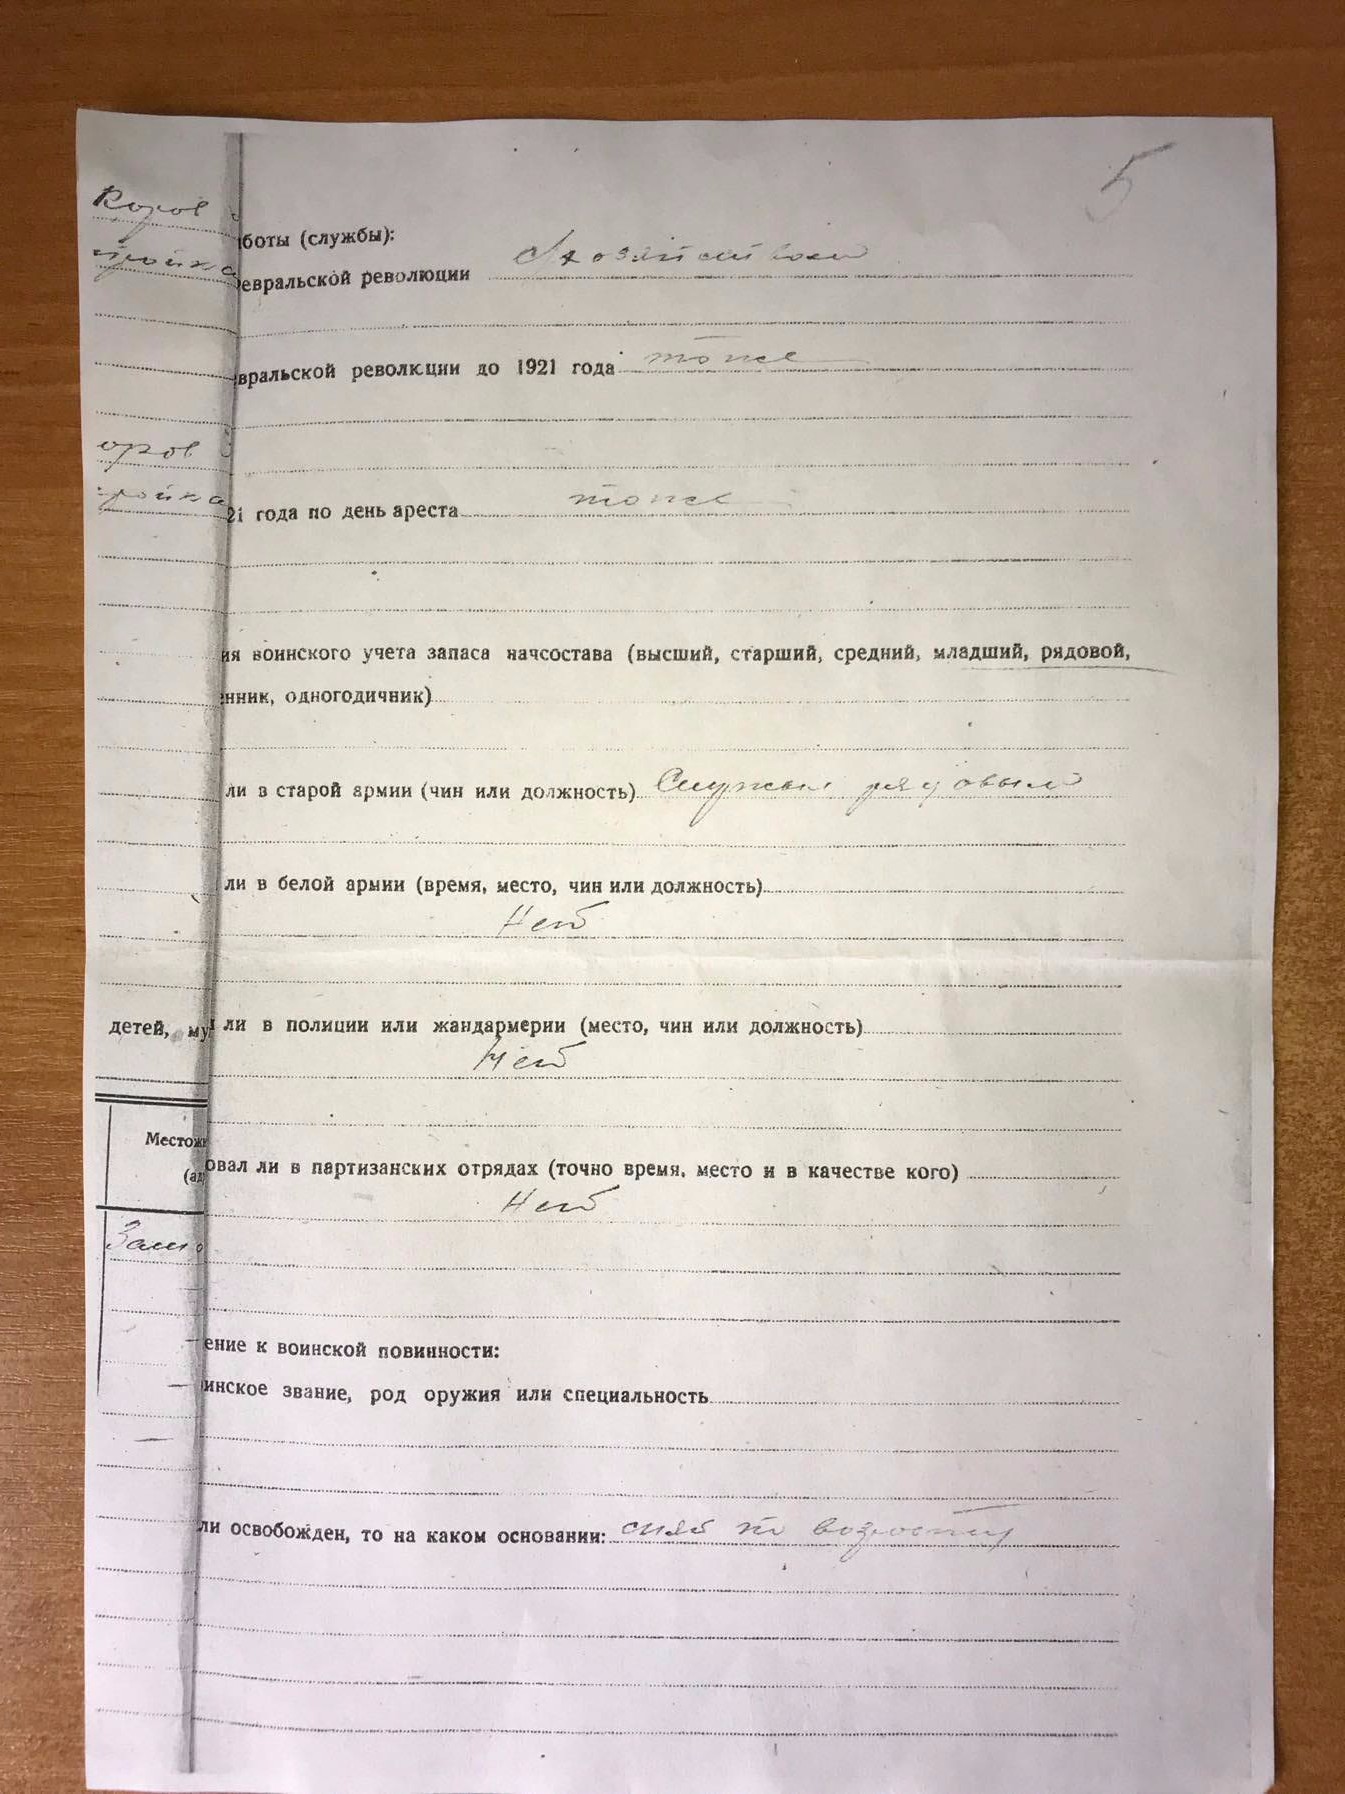 5
Коров
боты (службы):
тройка
евральской революции С/хозяйством
вральской революции до 1921 года тоже
оров
тройка
21 года по день ареста тоже
ия воинского учета запаса начсостава (высший, старший, средний, младший, рядовой,
нник, одногодичник)
ли в старой армии (чин или должность) Служил рядовым
ли в белой армии (время, место, чин или должность)
Нет
детей, му
ли в полиции или жандармерии (место, чин или должность)
Нет
Местожи
(ад
овал ли в партизанских отрядах (точно время, место и в качестве кого)
Нет
ение к воинской повинности:
инское звание, род оружия или специальность
ли освобожден, то на каком основании: снят по возрасту